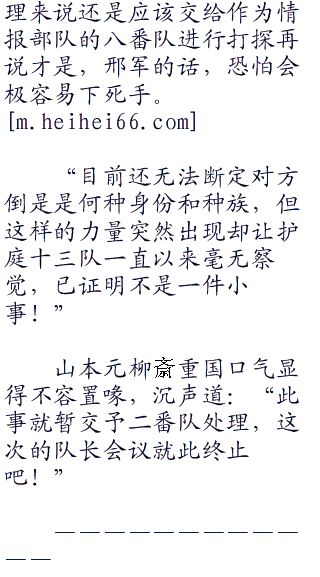 理来说还是应该交给作为情
报部队的八番队进行打探再
说才是，邢军的话，恐怕会
极容易下死手。
[m.heihei66.com]
“目前还无法断定对方
倒是是何种身份和种族，但
这样的力量突然出现却让护
庭十三队一直以来毫无察
觉，已证明不是一件小
事！”
山本元柳斎重国口气显
得不容置喙，沉声道：“此
事就暂交予二番队处理，这
次的队长会议就此终止
吧！”
－－－－－－－－－－
－－